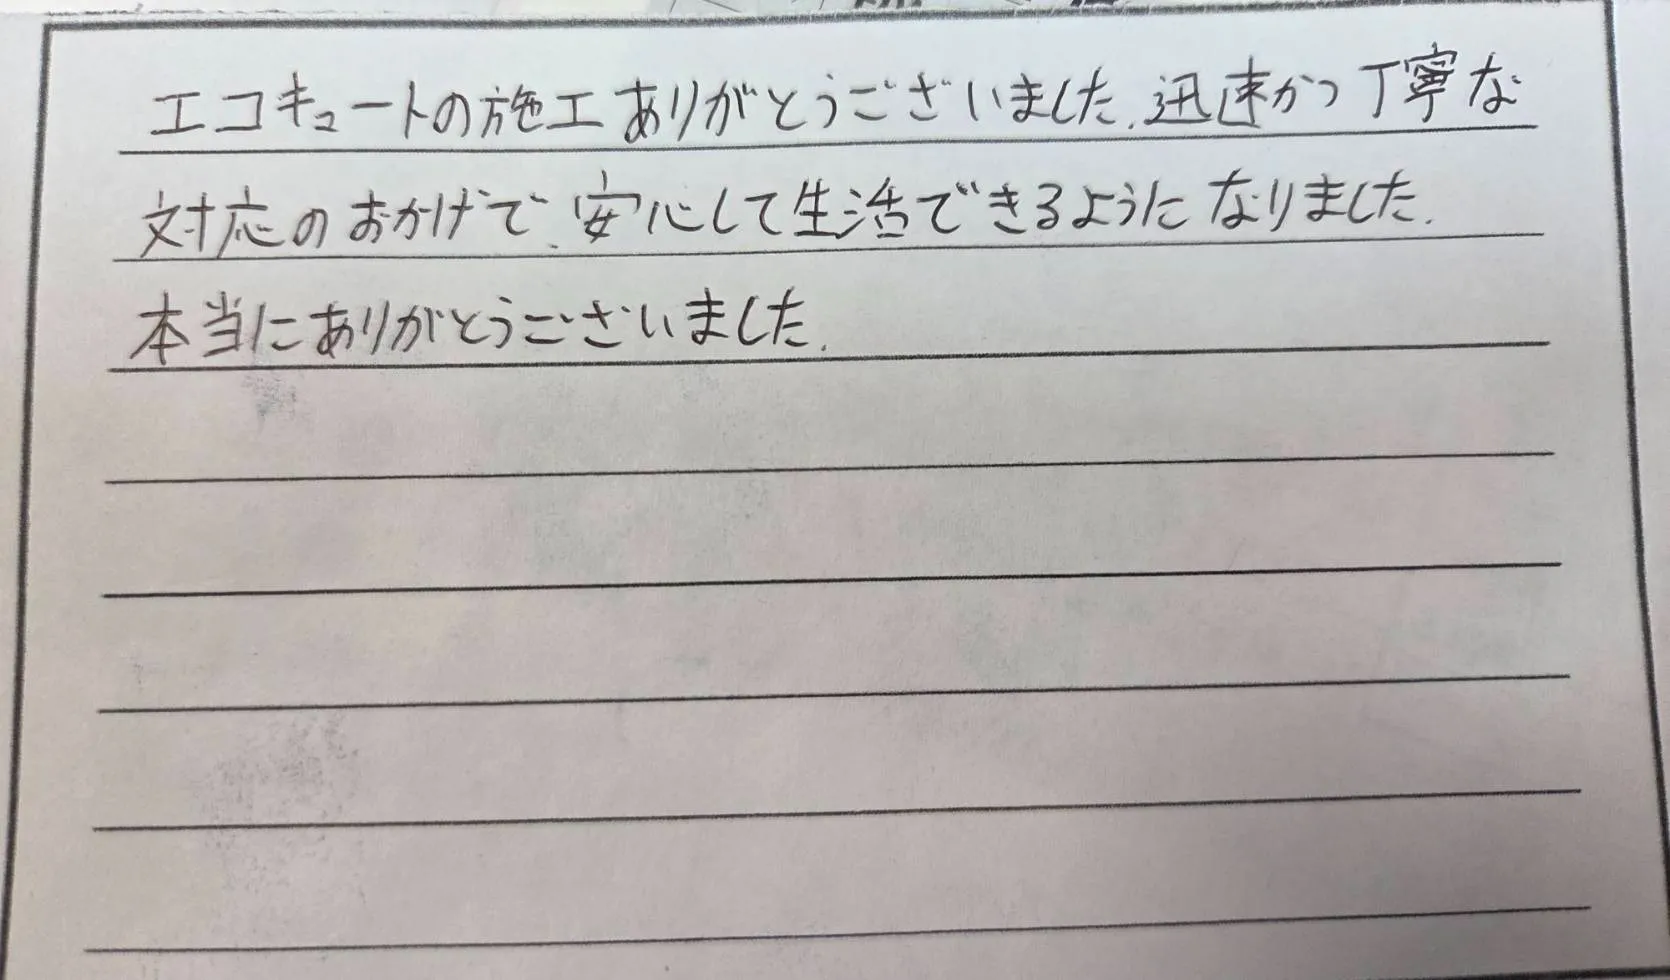 エコキュートの施工ありがとうございました.迅速かつ丁寧な
対応のおかげで.安心して生活できるようになりました.
本当にありがとうございました.